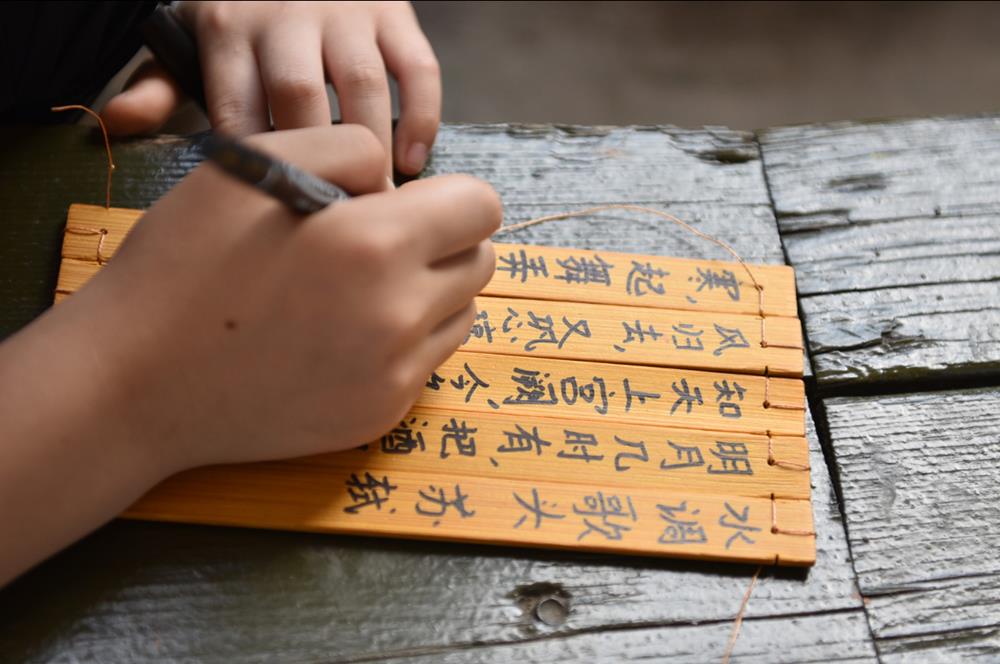 水调歌头 苏轼
明月几时有，把酒
知天上宫阙，今
风归去，又恐琼
寒，起舞弄